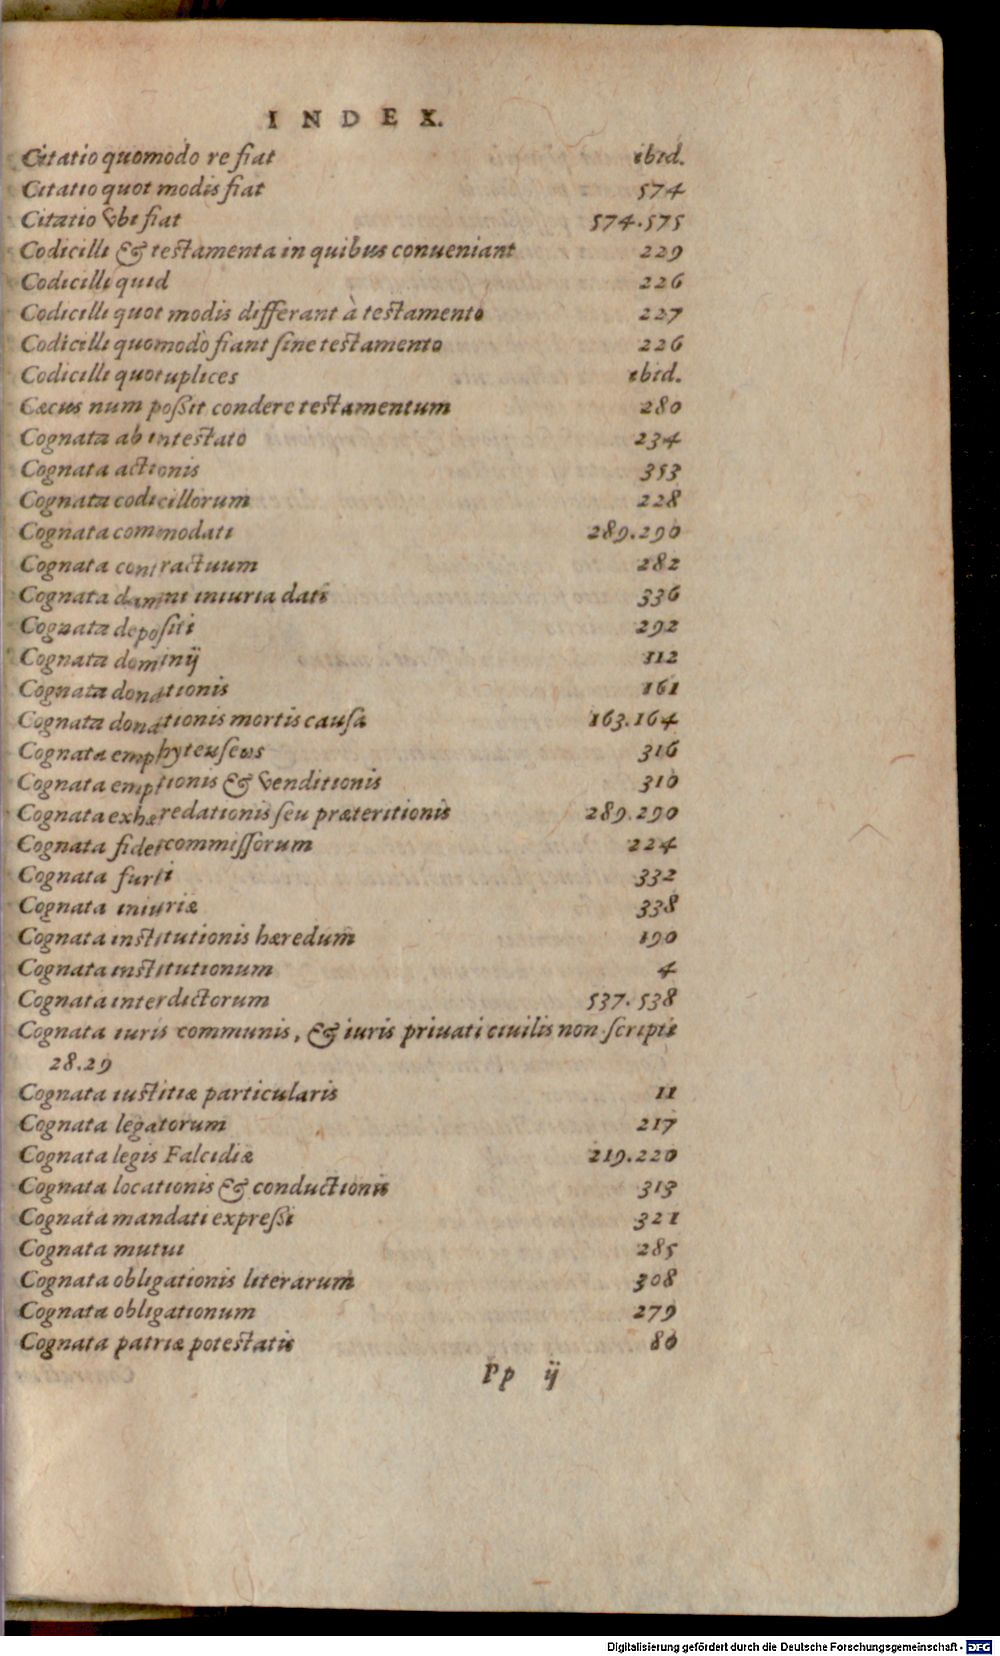 INDEX.
Citatio quomodo re fiat ibid.
Citatio quot modis fiat 574
Citatio vbi fiat 574.575
Codicilli & testamenta in quibus conueniant 229
Codicilli quid 226
Codicilli quot modis differant à testamento 227
Codicilli quomodò fiant sine testamento 226
Codicilli quotuplices ibid.
Cæcus num possit condere testamentum 280
Cognata ab intestato 234
Cognata actionis 353
Cognata codicillorum 228
Cognata commodati 289.290
Cognata contractuum 282
Cognata damni iniuria dati 336
Cognata depositi 292
Cognata dominij 112
Cognata donationis 161
Cognata donationis mortis causa 163.164
Cognata emphyteuseως 316
Cognata emptionis & venditionis 310
Cognata exhæredationis seu præteritionis 289.290
Cognata fideicommissorum 224
Cognata furti 332
Cognata iniuriæ 338
Cognata institutionis hæredum 190
Cognata institutionum 4
Cognata interdictorum 537.538
Cognata iuris communis, & iuris priuati ciuilis non scripti
28.29
Cognata iustitiæ particularis 11
Cognata legatorum 217
Cognata legis Falcidiæ 219.220
Cognata locationis & conductionis 313
Cognata mandati expressi 321
Cognata mutui 285
Cognata obligationis literarum 308
Cognata obligationum 279
Cognata patriæ potestatis 80
Pp ij
Digitalisierung gefördert durch die Deutsche Forschungsgemeinschaft - DFG